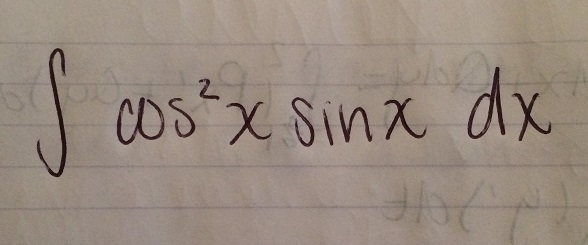 ∫ cos²x sinx dx